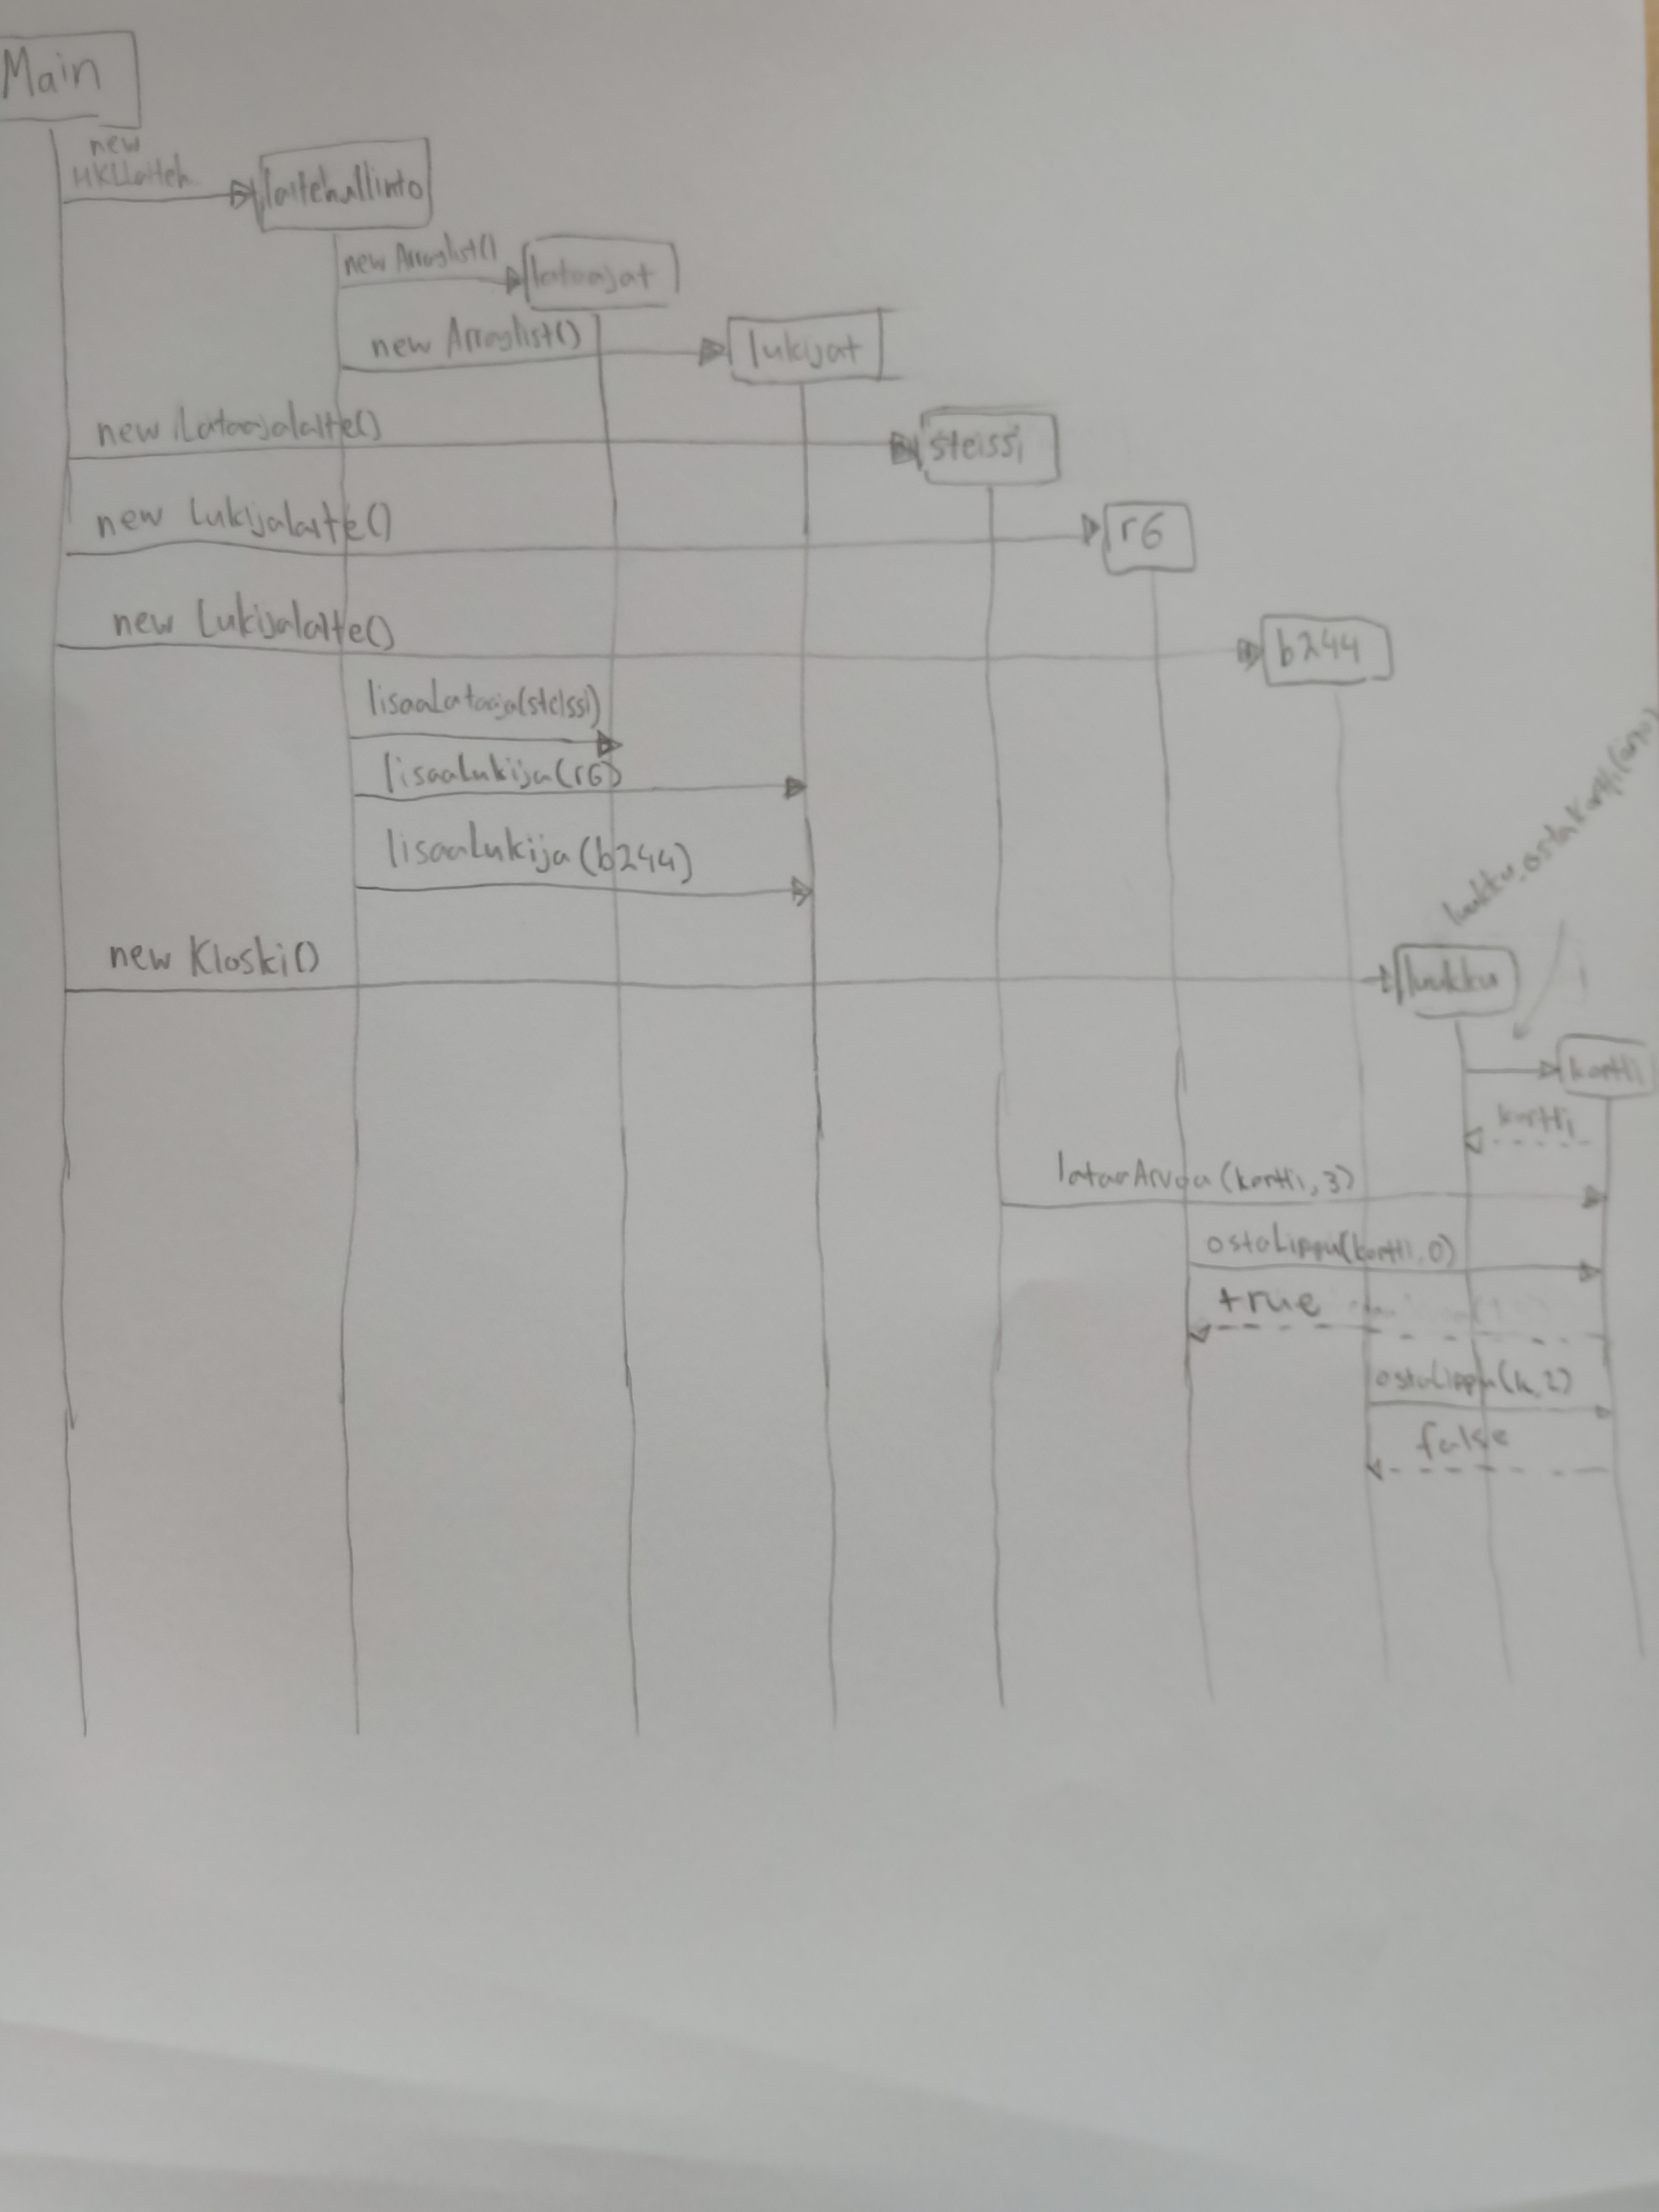 Main
new
HKLLaiteh.
laitehallinto
new Arraylist()
lataajat
new Arraylist()
lukijat
new Lataajalaite()
steissi
new Lukijalaite()
r6
new Lukijalaite()
b244
lisaaLataaja(steissi)
lisaaLukija(r6)
lisaaLukija(b244)
luukku.ostaKortti(arto)
new Kioski()
luukku
kortti
kortti
lataaArvoa(kortti,3)
ostaLippu(kortti,0)
true
ostaLippu(k,2)
false